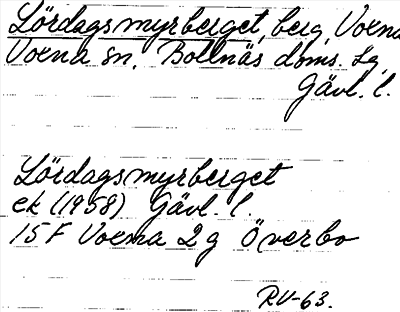 Lördagsmyrberget, berg, Voxna
Voxna sn, Bollnäs doms. lg,
Gävl. l.
Lördagsmyrberget
ek (1958) Gävl. l.
15F Voxna 2g Överbo
RV-63.